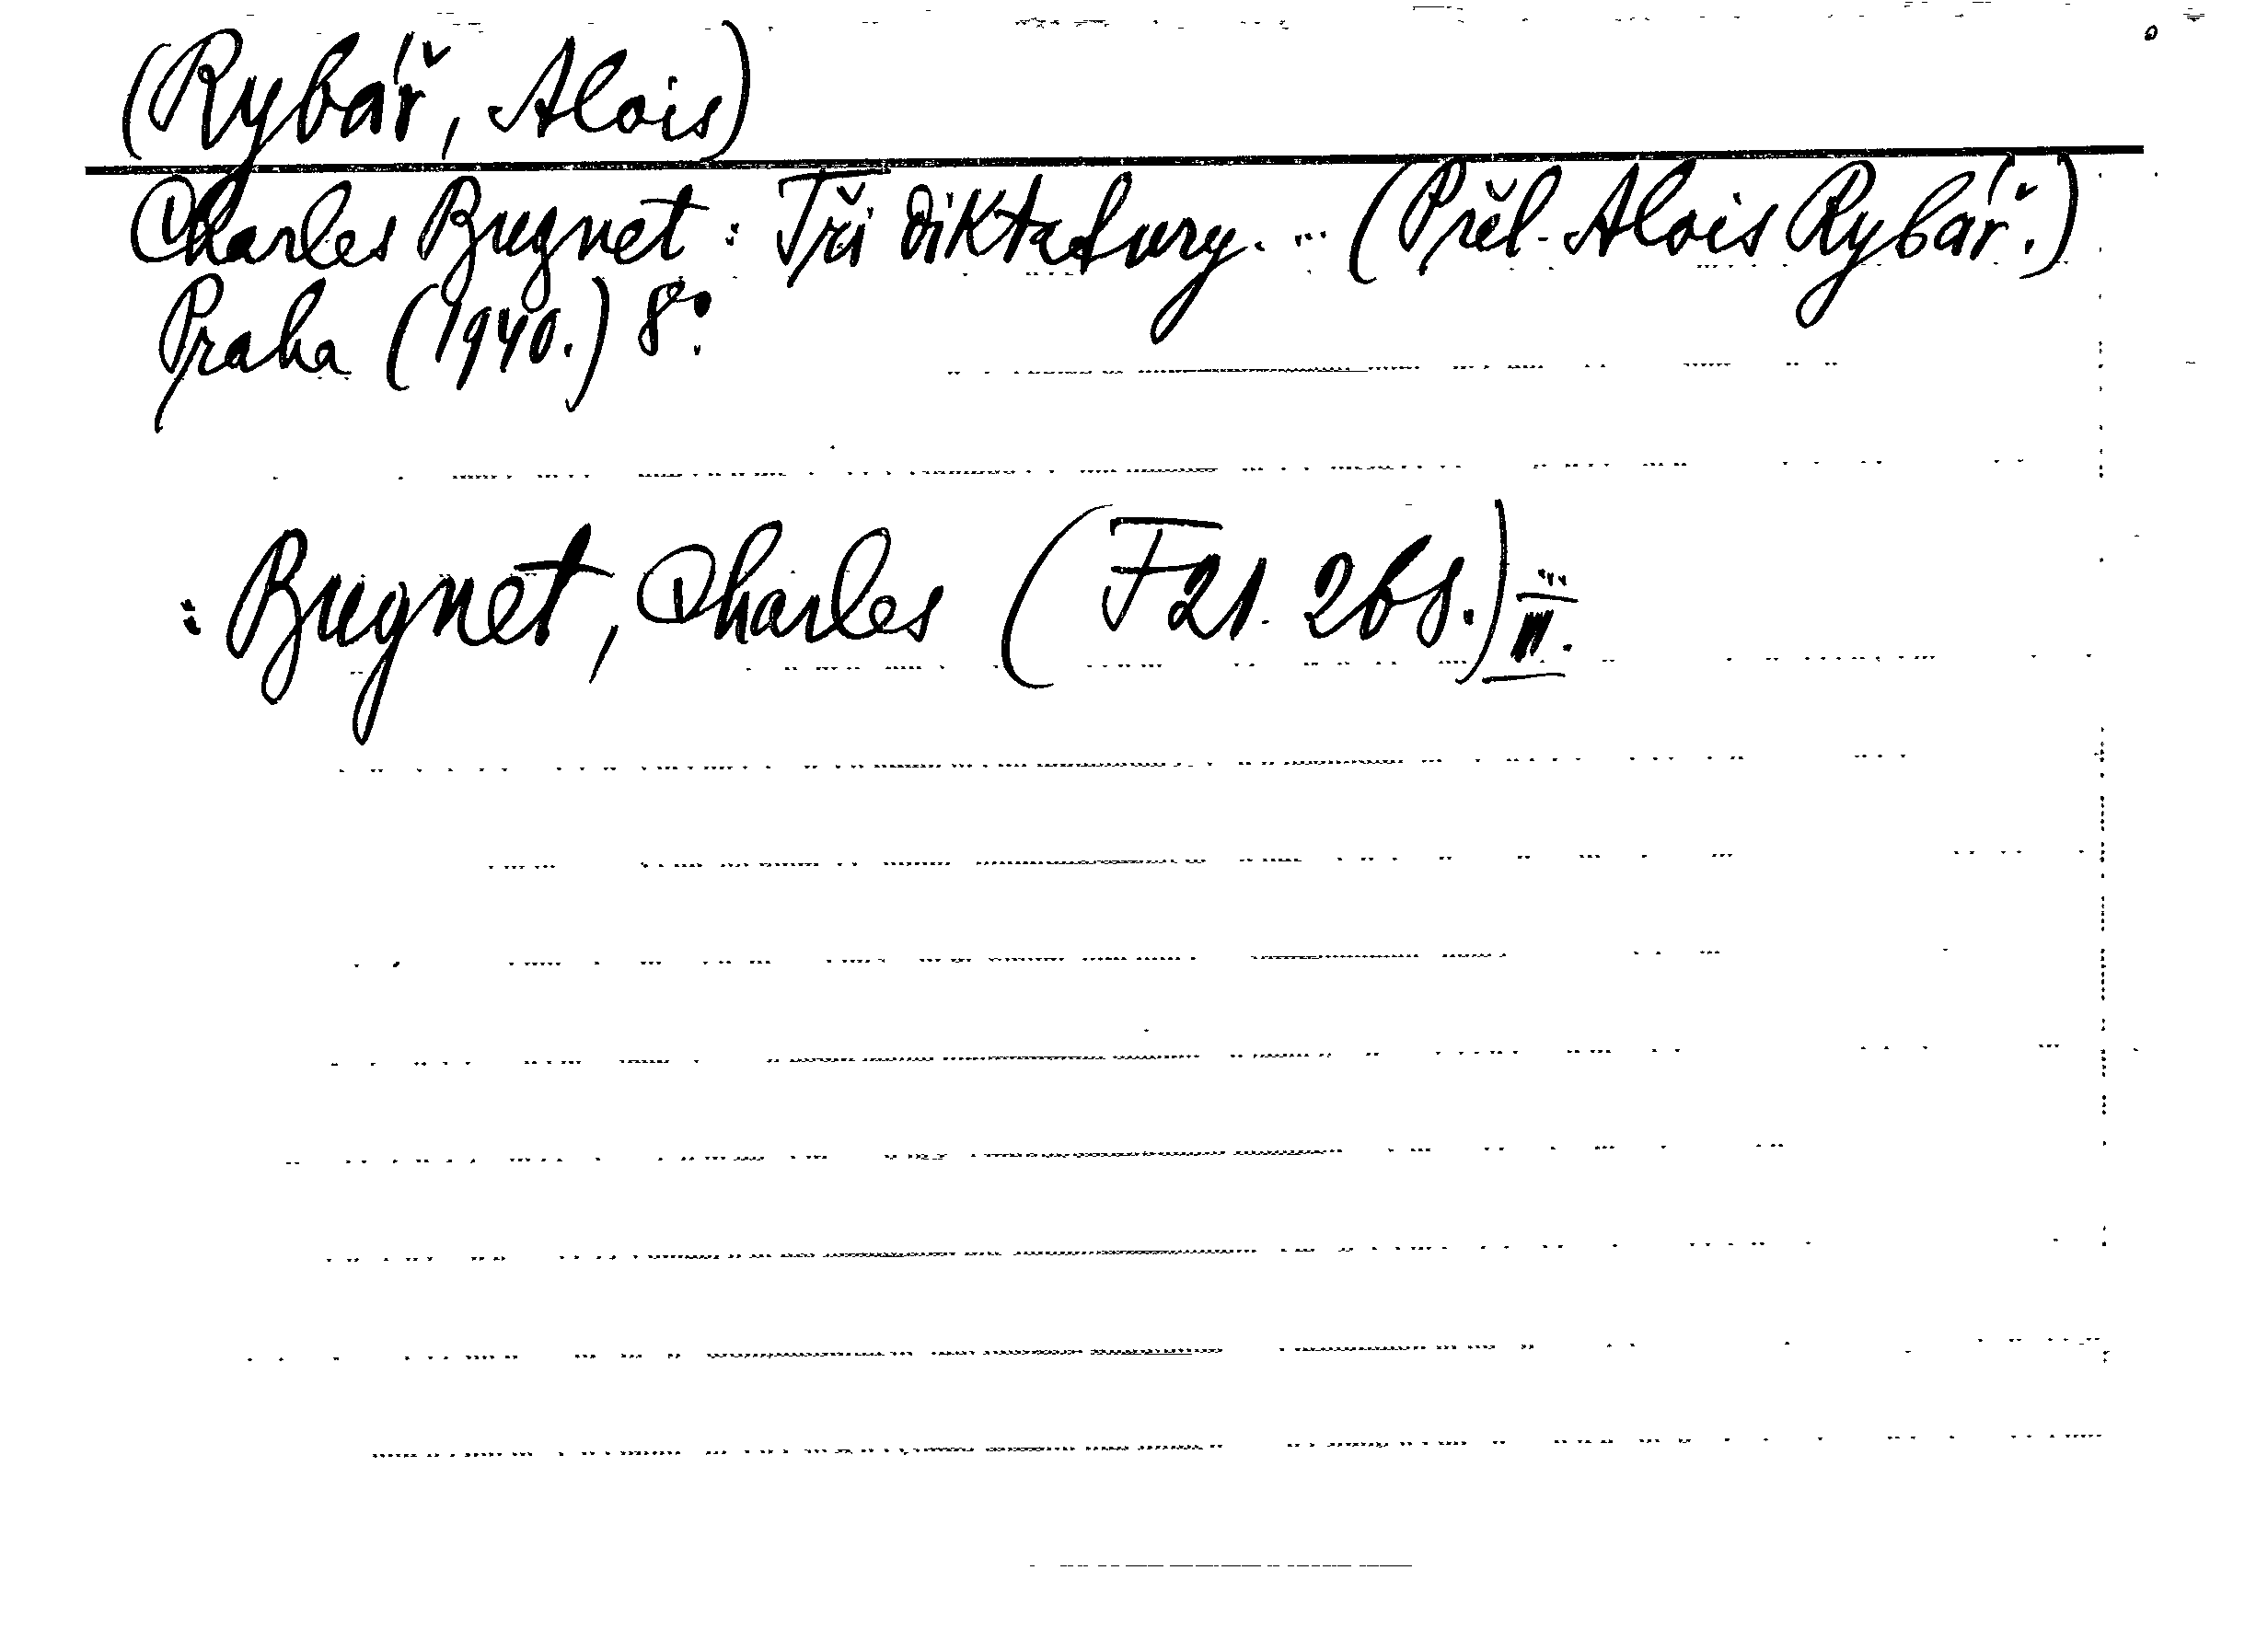 (Rybář, Alois)
Charles Bugnet: Tři diktatury. ... (Přel. Alois Rybář.)
Praha (1940.) 8°.
: Bugnet, Charles (F 21. 268.) III.